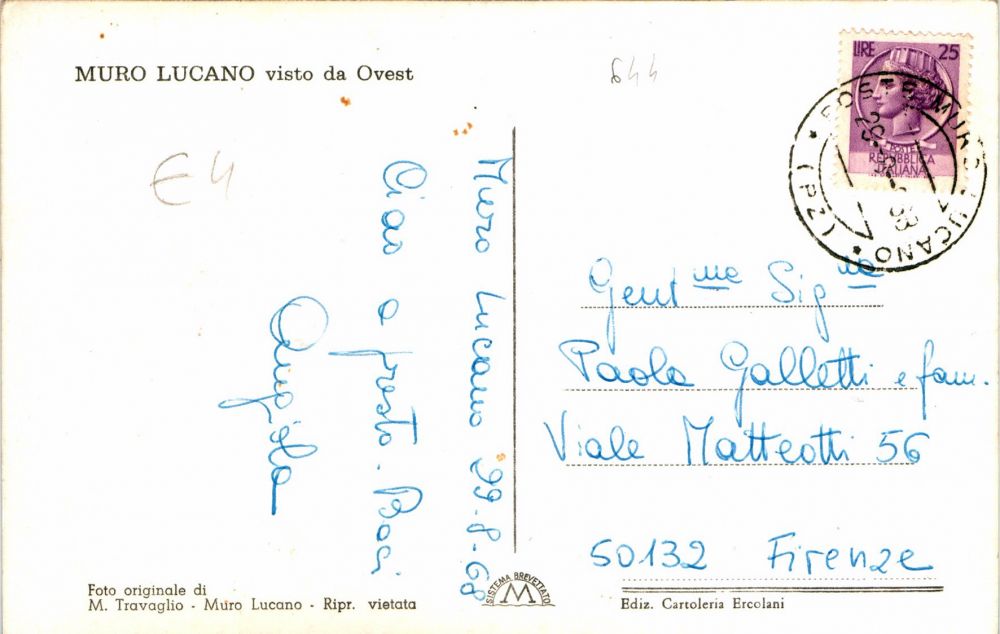 MURO LUCANO visto da Ovest
644
E 4
LIRE 25
POSTE
REPUBBLICA
ITALIANA
POSTE MURO LUCANO * (PZ) *
Muro Lucano 29-8-68
Ciao a presto. Baci
Gent.me Sig.na
Paola Galletti e fam.
Viale Matteotti 56
50132 Firenze
Foto originale di
M. Travaglio - Muro Lucano - Ripr. vietata
SISTEMA BREVETTATO
M
Ediz. Cartoleria Ercolani